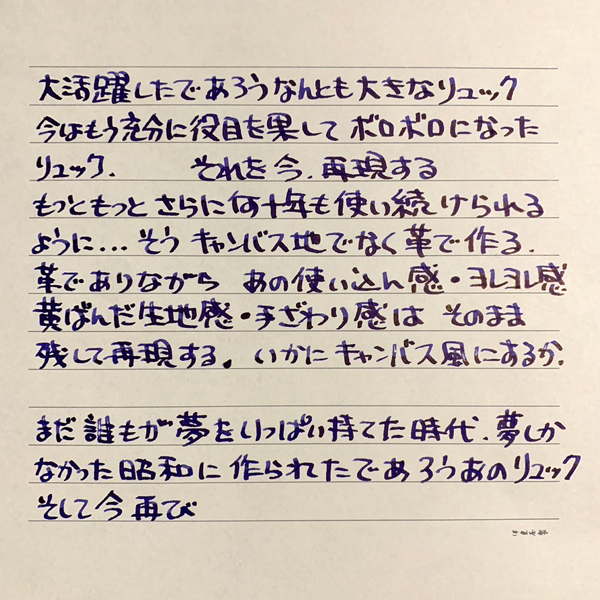 大活躍したであろうなんとも大きなリュック
今はもう充分に役目を果して ボロボロになった
リュック. それを今.再現する
もっともっと さらに何十年も使い続けられる
ように... そう キャンバス地でなく革で作る.
革でありながら あの使い込ん感・ヨレヨレ感
黄ばんだ生地感・手ざわり感は そのまま
残して再現する. いかにキャンバス風にあるか.
まだ誰もが夢をいっぱい持てた時代.夢しか
なかった昭和に作られたであろうあのリュック
そして今再び